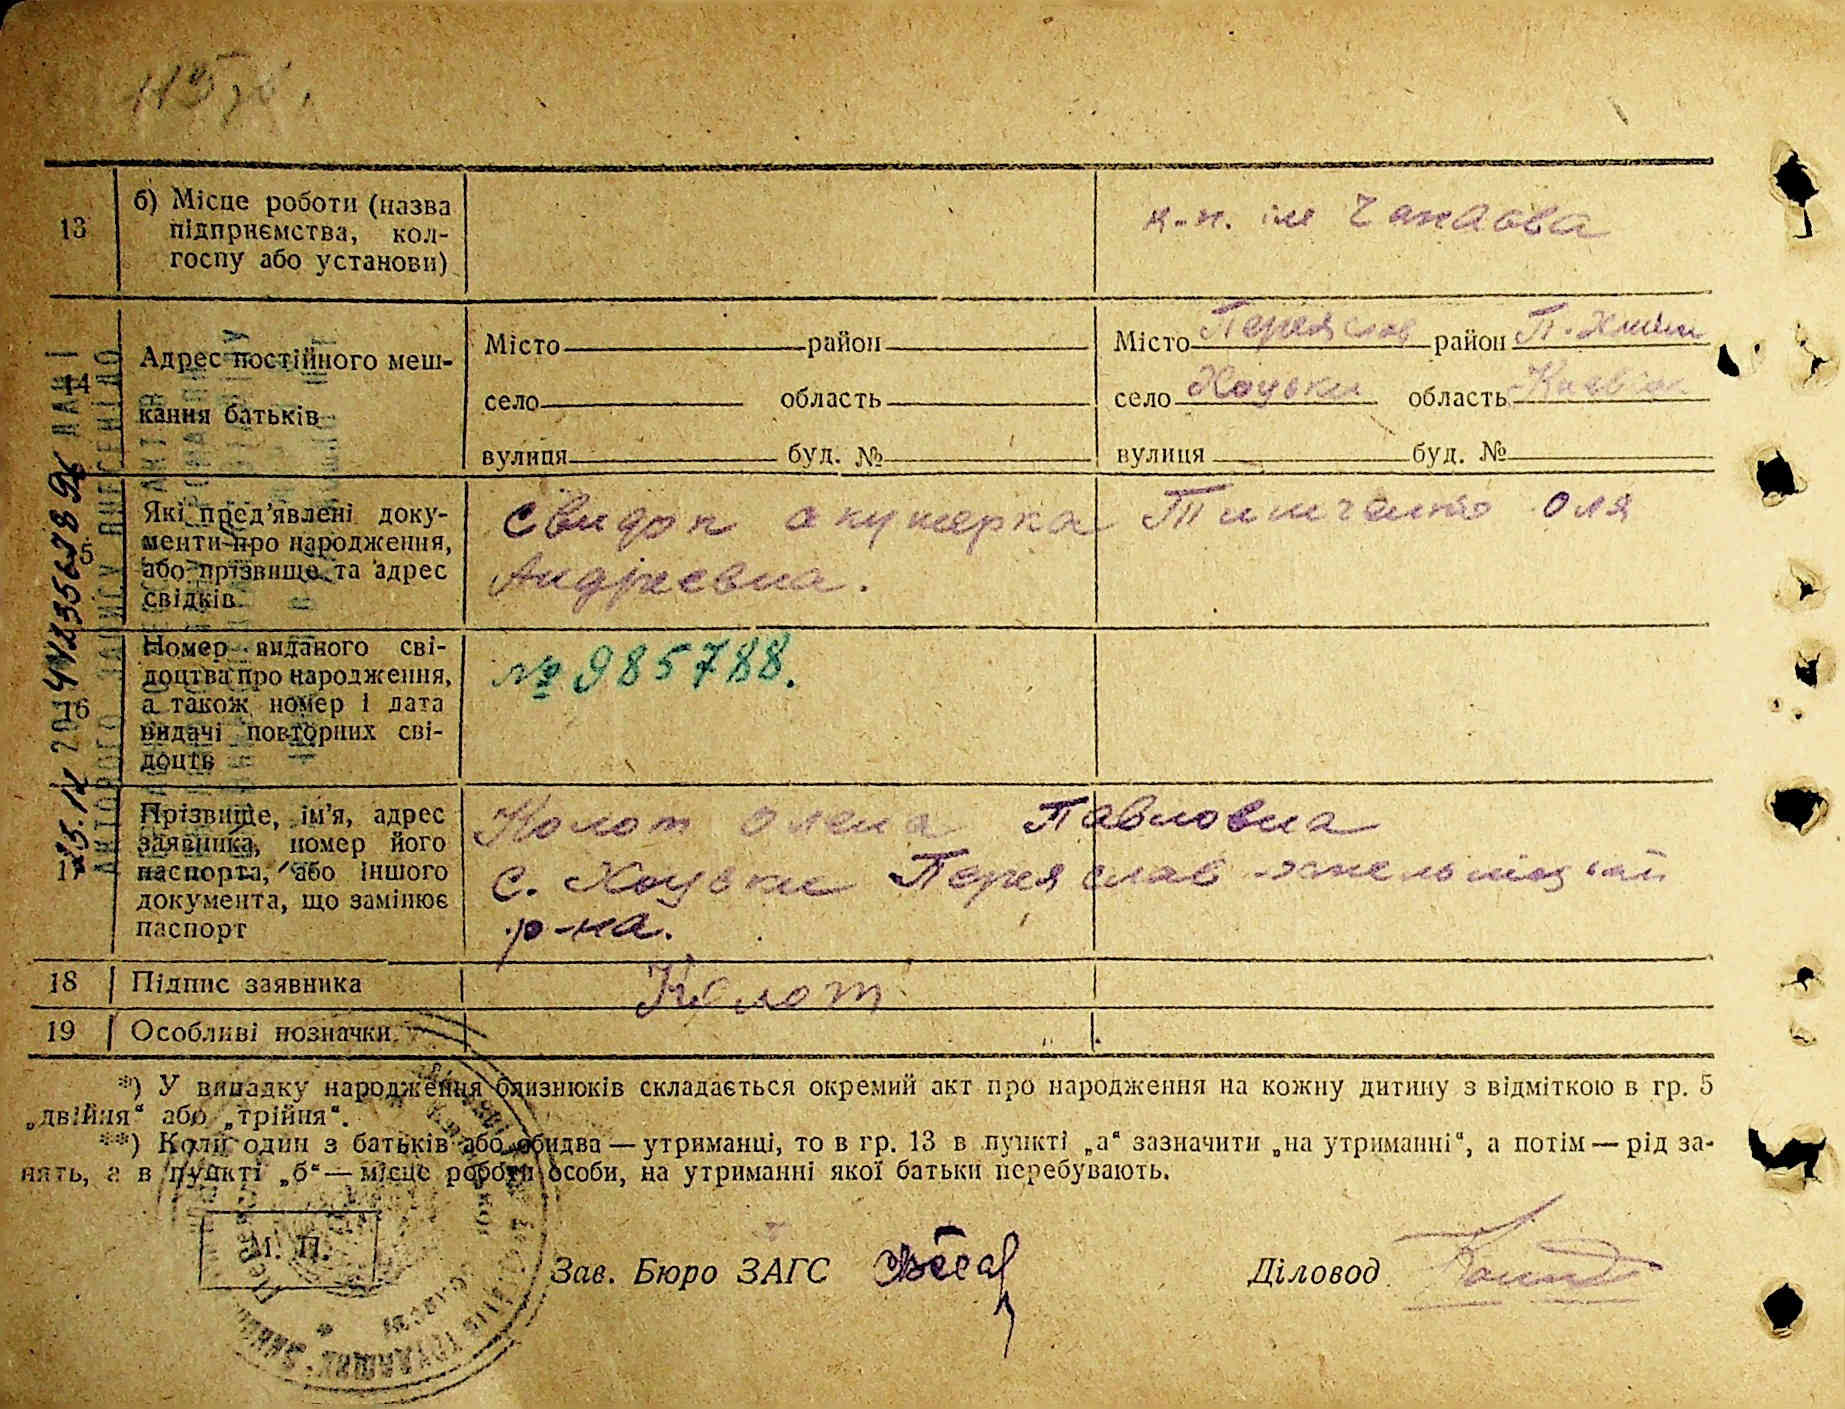 13
б) Місце роботи (назва
підприємства, кол-
госпу або установи)
к-п. ім Чапаєва
14
Адрес постійного меш-
кання батьків
Місто район
село область
вулиця буд. №
Місто Переяслав район П-Хмільн
село Хоцьки область Київськ
вулиця буд. №
Які пред’явлені доку-
менти про народження,
або прізвище та адрес
свідків
Свидок акушерка Тимченко Оля
Андреевна.
16
Номер виданого сві-
доцтва про народження,
а також номер і дата
видачі повторних сві-
доцтв
№ 985788.
17
Прізвище, ім’я, адрес
заявника, номер його
паспорта, або іншого
документа, що замінює
паспорт
Колот Олена Павловна
с. Хоцьки Переяслав-Хмельницький
р-на.
18 Підпис заявника
Колот
19 Особливі позначки
*) У випадку народження близнюків складається окремий акт про народження на кожну дитину з відміткою в гр. 5
„двійня“ або „трійня“.
**) Коли один з батьків або обидва — утриманці, то в гр. 13 в пункті „а“ зазначити „на утриманні“, а потім — рід за-
нять, а в пункті „б“ — місце роботи особи, на утриманні якої батьки перебувають.
М. П.
Зав. Бюро ЗАГС
Діловод